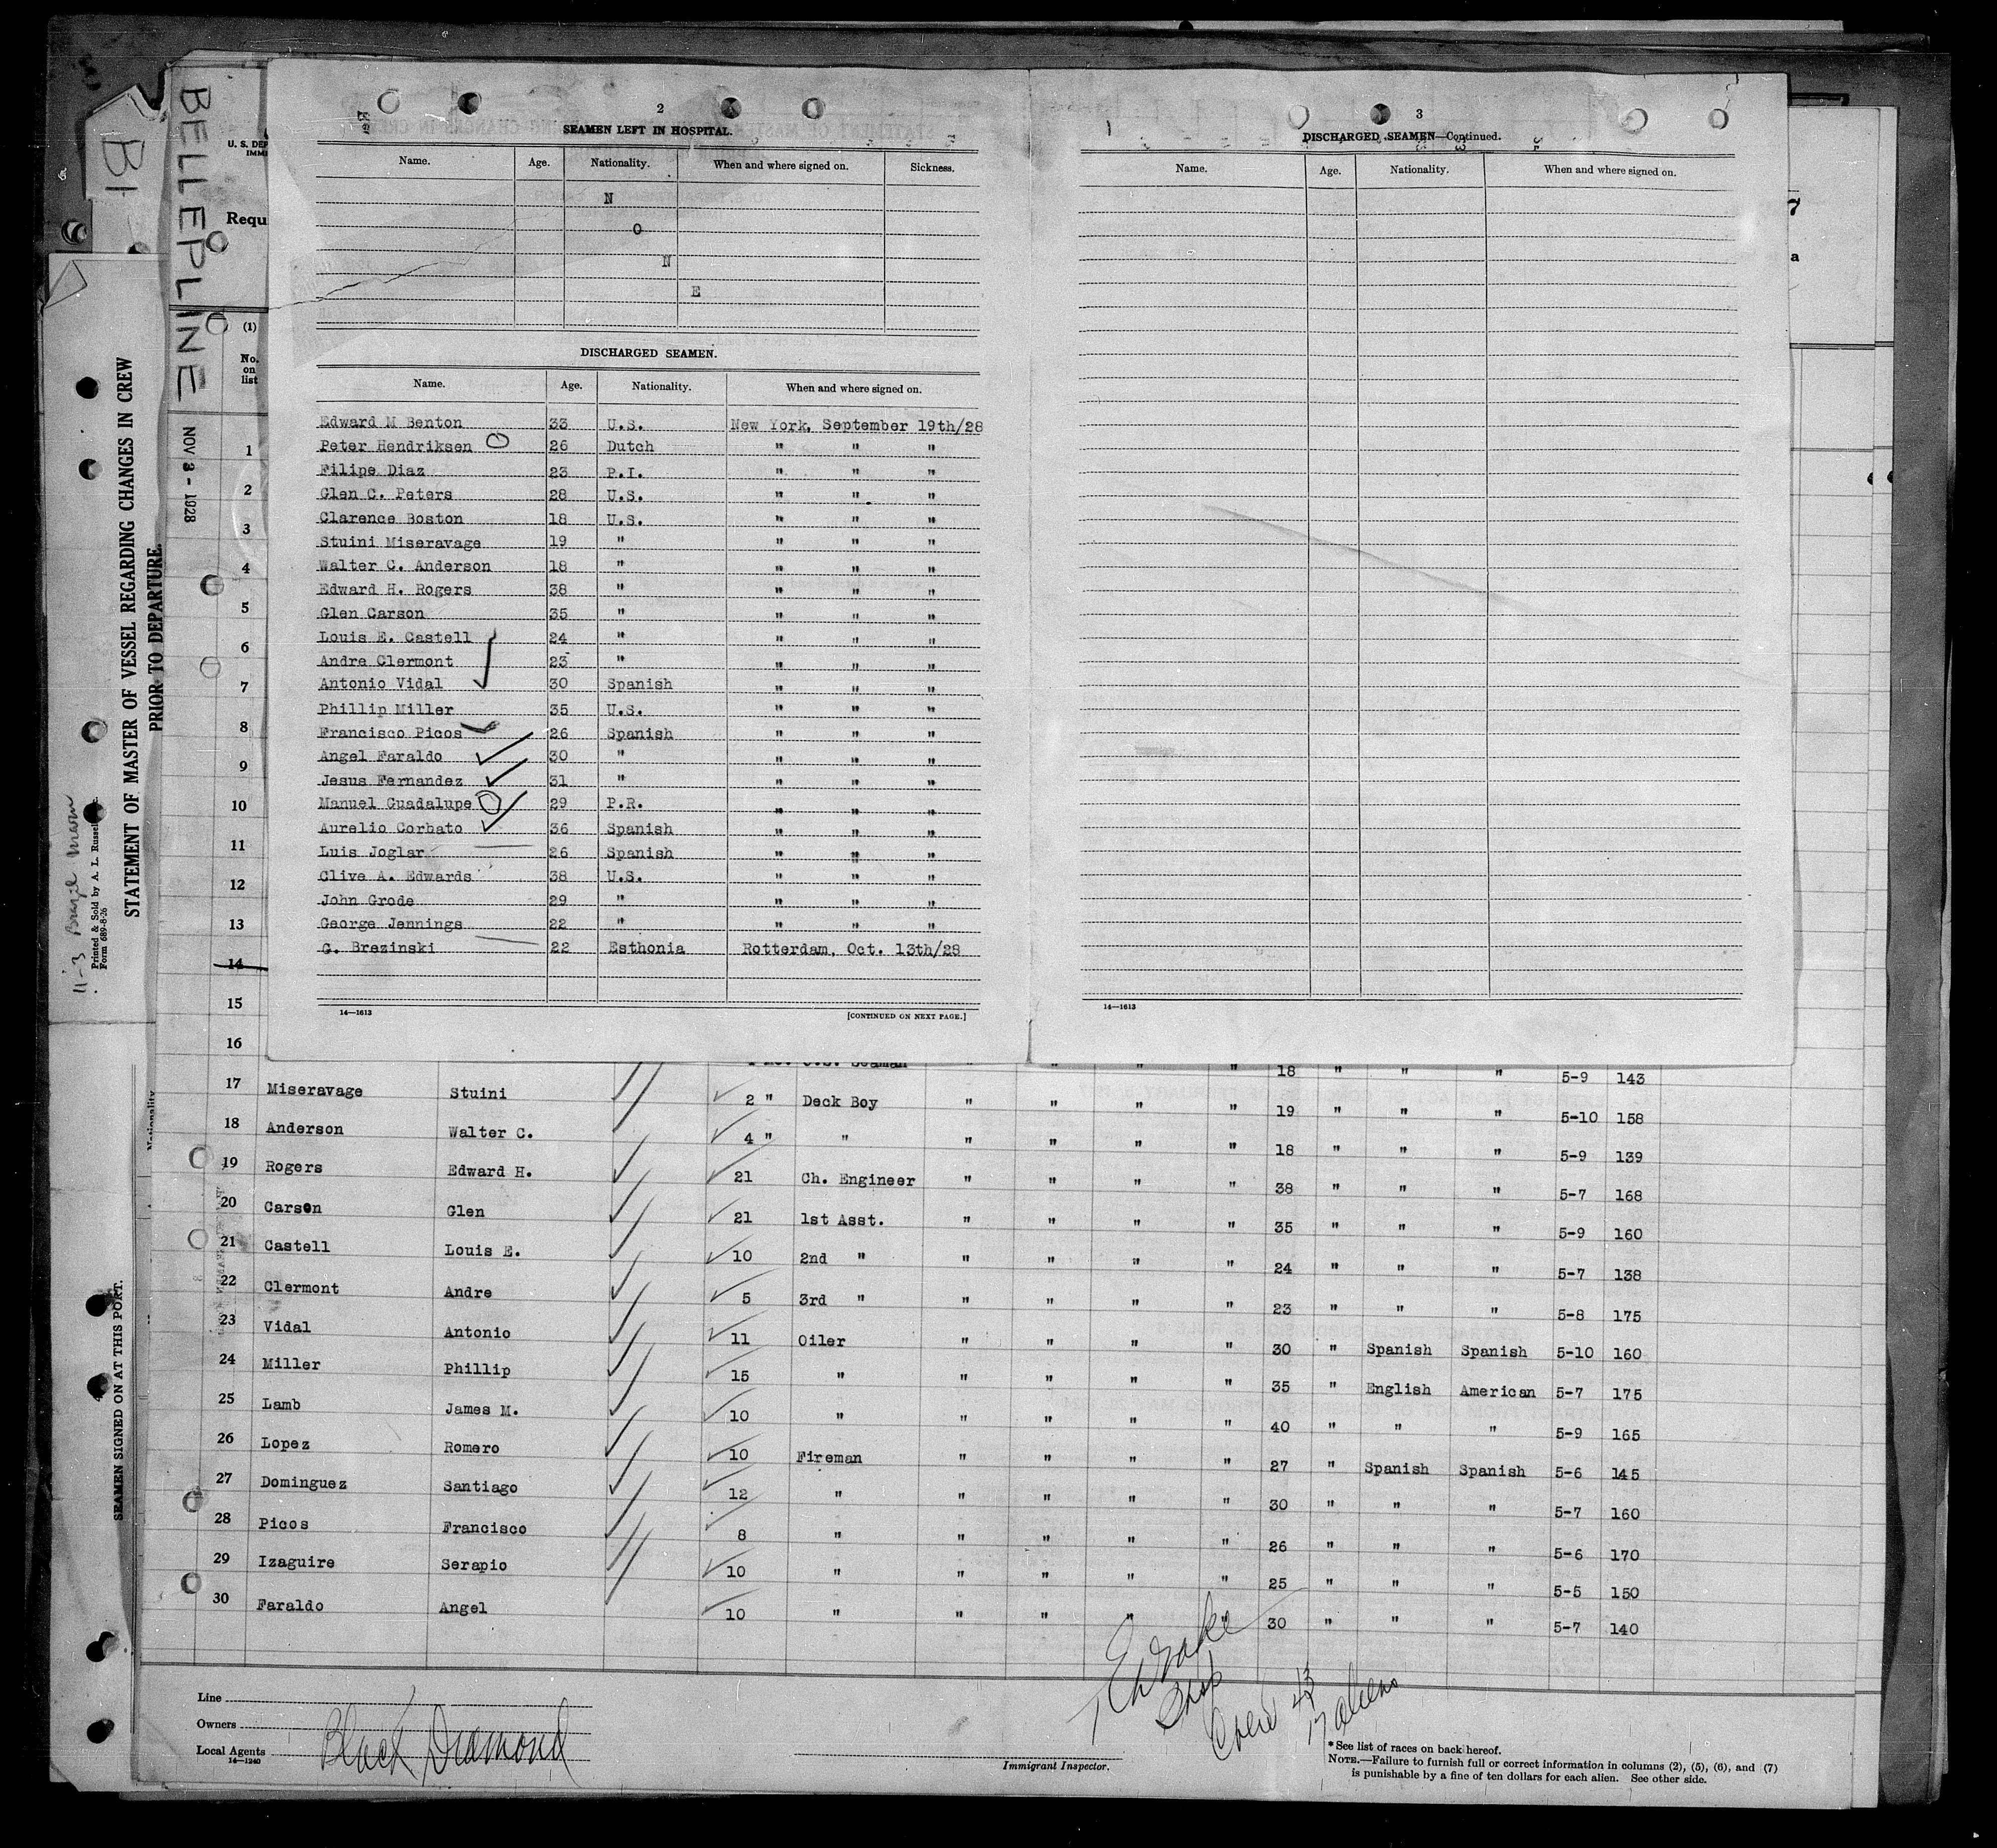 BELLEPLINE
NOV 3 - 1928
B1
STATEMENT OF MASTER OF VESSEL REGARDING CHANGES IN CREW
PRIOR TO DEPARTURE.
Printed & Sold by A. L. Russell
Form 689-8-26
SEAMEN SIGNED ON AT THIS PORT.
Nationality
U. S. DEP
IMMI
Requ
(1)
No. on list
2
SEAMEN LEFT IN HOSPITAL.
Name. Age. Nationality. When and where signed on. Sickness.
N
O
N
E
DISCHARGED SEAMEN.
Name. Age. Nationality. When and where signed on.
Edward M Benton 33 U.S. New York, September 19th/28
Peter Hendriksen 26 Dutch " " "
Filipe Diaz 23 P.I. " " "
Glen C. Peters 28 U.S. " " "
Clarence Boston 18 U.S. " " "
Stuini Miseravage 19 " " " "
Walter C. Anderson 18 " " " "
Edward H. Rogers 38 " " " "
Glen Carson 35 " " " "
Louis E. Castell 24 " " " "
Andre Clermont 23 " " " "
Antonio Vidal 30 Spanish " " "
Phillip Miller 35 U.S. " " "
Francisco Picos 26 Spanish " " "
Angel Faraldo 30 " " " "
Jesus Fernandez 31 " " " "
Manuel Guadalupe 29 P.R. " " "
Aurelio Corbato 36 Spanish " " "
Luis Joglar 26 Spanish " " "
Clive A. Edwards 38 U.S. " " "
John Grode 29 " " " "
George Jennings 22 " " " "
G. Brezinski 22 Esthonia Rotterdam, Oct. 13th/28
14—1613 [CONTINUED ON NEXT PAGE.]
3
DISCHARGED SEAMEN—Continued.
Name. Age. Nationality. When and where signed on.
14—1613
7
a
1
2
3
4
5
6
7
8
9
10
11
12
13
14
15
16 " " " " 18 " " " 5-9 143
17 Miseravage Stuini 2 " Deck Boy " " " " 19 " " " 5-10 158
18 Anderson Walter C. 4 " " " " " " 18 " " " 5-9 139
19 Rogers Edward H. 21 Ch. Engineer " " " " 38 " " " 5-7 168
20 Carson Glen 21 1st Asst. " " " " 35 " " " 5-9 160
21 Castell Louis E. 10 2nd " " " " " 24 " " " 5-7 138
22 Clermont Andre 5 3rd " " " " " 23 " " " 5-8 175
23 Vidal Antonio 11 Oiler " " " " 30 " Spanish Spanish 5-10 160
24 Miller Phillip 15 " " " " " 35 " English American 5-7 175
25 Lamb James M. 10 " " " " " 40 " " " 5-9 165
26 Lopez Romero 10 Fireman " " " " 27 " Spanish Spanish 5-6 145
27 Dominguez Santiago 12 " " " " " 30 " " " 5-7 160
28 Picos Francisco 8 " " " " " 26 " " " 5-6 170
29 Izaguire Serapio 10 " " " " " 25 " " " 5-5 150
30 Faraldo Angel 10 " " " " " 30 " " " 5-7 140
Line
Owners
Local Agents
14—1240
Black Diamond
Crew 43
17 aliens
Immigrant Inspector.
* See list of races on back hereof.
NOTE.—Failure to furnish full or correct information in columns (2), (5), (6), and (7)
is punishable by a fine of ten dollars for each alien. See other side.